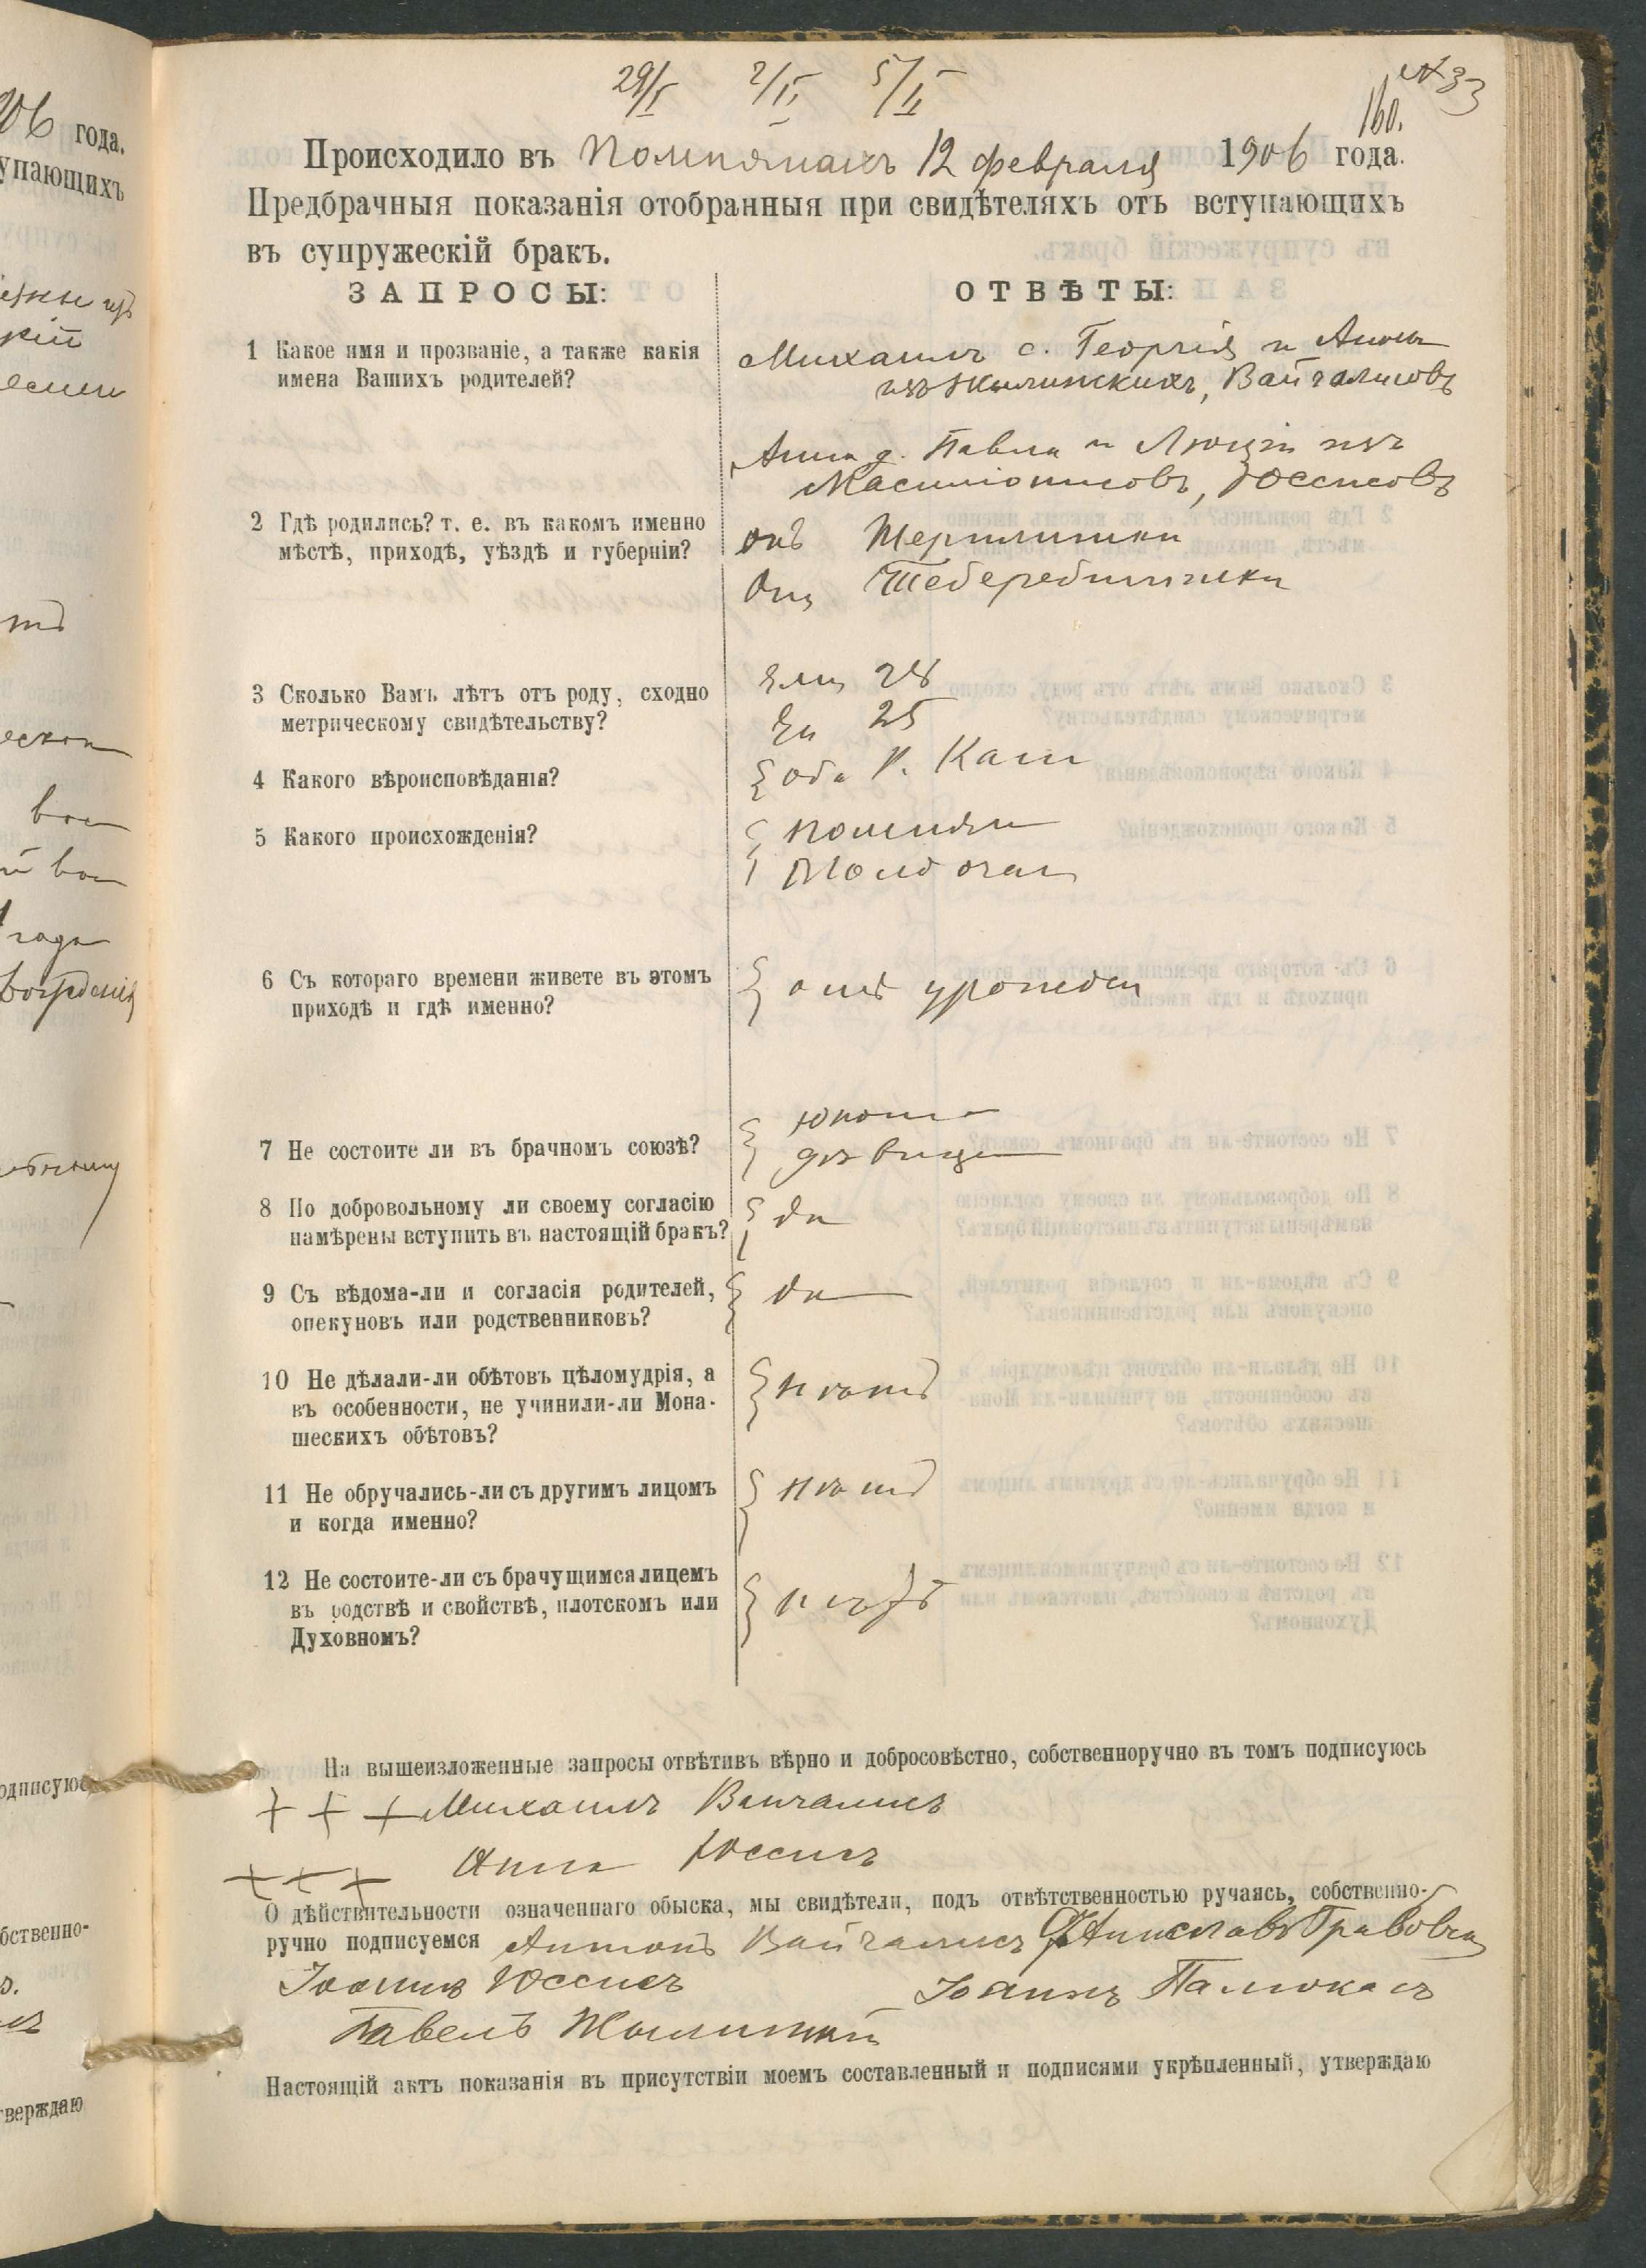 29/I 2/II 5/II
№ 33
160.
Происходило въ Помпянахъ 12 февраля 1906 года.
Предбрачныя показанія отобранныя при свидѣтеляхъ отъ вступающихъ
въ супружескій бракъ.
ЗАПРОСЫ: ОТВѢТЫ:
1 Какое имя и прозваніе, а также какія
имена Вашихъ родителей?
Михаилъ с. Георгія и Анны
изъ Жилинскихъ, Вайчалисовъ
Анна д. Павла и Люціи изъ
Масиліонисовъ, Юссисовъ
2 Гдѣ родились? т. е. въ какомъ именно
мѣстѣ, приходѣ, уѣздѣ и губерніи?
онъ
Она
3 Сколько Вамъ лѣтъ отъ роду, сходно
метрическому свидѣтельству?
ему 28
ей 25
4 Какого вѣроисповѣданія?
оба Р. Кат
5 Какого происхожденія?
6 Съ котораго времени живете въ этомъ
приходѣ и гдѣ именно?
отъ урожден
7 Не состоите ли въ брачномъ союзѣ?
юноша
дѣвица
8 По добровольному ли своему согласію
намѣрены вступить въ настоящій бракъ?
да
9 Съ вѣдома-ли и согласія родителей,
опекуновъ или родственниковъ?
да
10 Не дѣлали-ли обѣтовъ цѣломудрія, а
въ особенности, не учинили-ли Мона-
шескихъ обѣтовъ?
нѣтъ
11 Не обручались-ли съ другимъ лицомъ
и когда именно?
нѣтъ
12 Не состоите-ли съ брачущимся лицемъ
въ родствѣ и свойствѣ, плотскомъ или
Духовномъ?
нѣтъ
На вышеизложенные запросы отвѣтивъ вѣрно и добросовѣстно, собственноручно въ томъ подписуюсь
+ + + Михаилъ Вайчалисъ
+ + + Анна Юссисъ
О дѣйствительности означеннаго обыска, мы свидѣтели, подъ отвѣтственностью ручаясь, собственно-
ручно подписуемся Антонъ Вайчалисъ Станиславъ
Іоаннъ Юссисъ Іоаннъ Палюкасъ
Павелъ Жилинскій
Настоящій актъ показанія въ присутствіи моемъ составленный и подписями укрѣпленный, утверждаю